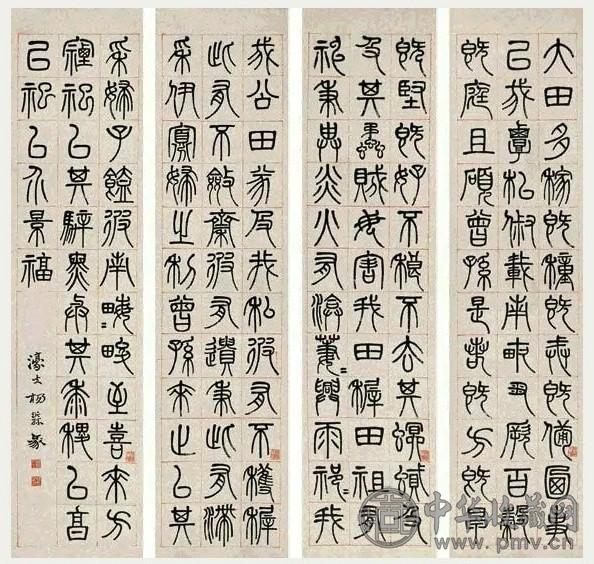 大田多稼既穜既戒既備乃事
以我覃耜俶載南畝播厥百穀
既庭且碩曾孫是若既方既皁
既堅既好不稂不莠去其螟螣
及其蟊賊毋害我田稺田祖有
神秉畀炎火有渰萋=興雨祁=雨
我公田遂及我私彼有不穫稺
此有不斂穧彼有遺秉此有滯
穗伊寡婦之利曾孫來止以其
婦子饁彼南畝田畯至喜來方
禋祀以其騂黑與其黍稷以享
以祀以介景福
濠叟楊沂孫篆
中华收藏网
www.pmv.cn